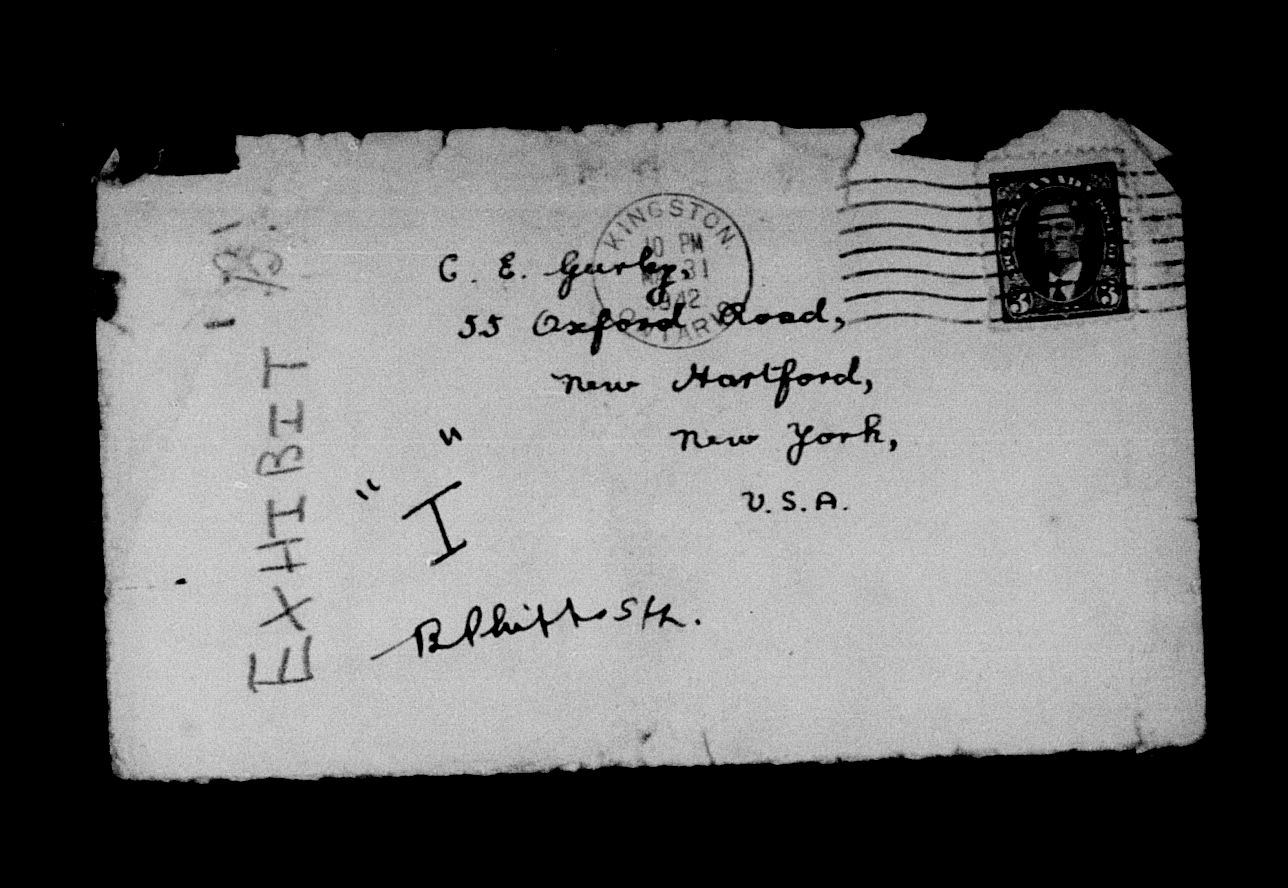 KINGSTON
10 PM
31
1942
ONTARIO
3 3
C. E. Gurby,
55 Oxford Road,
New Hartford,
New York,
U.S.A.
EXHIBIT
"I"